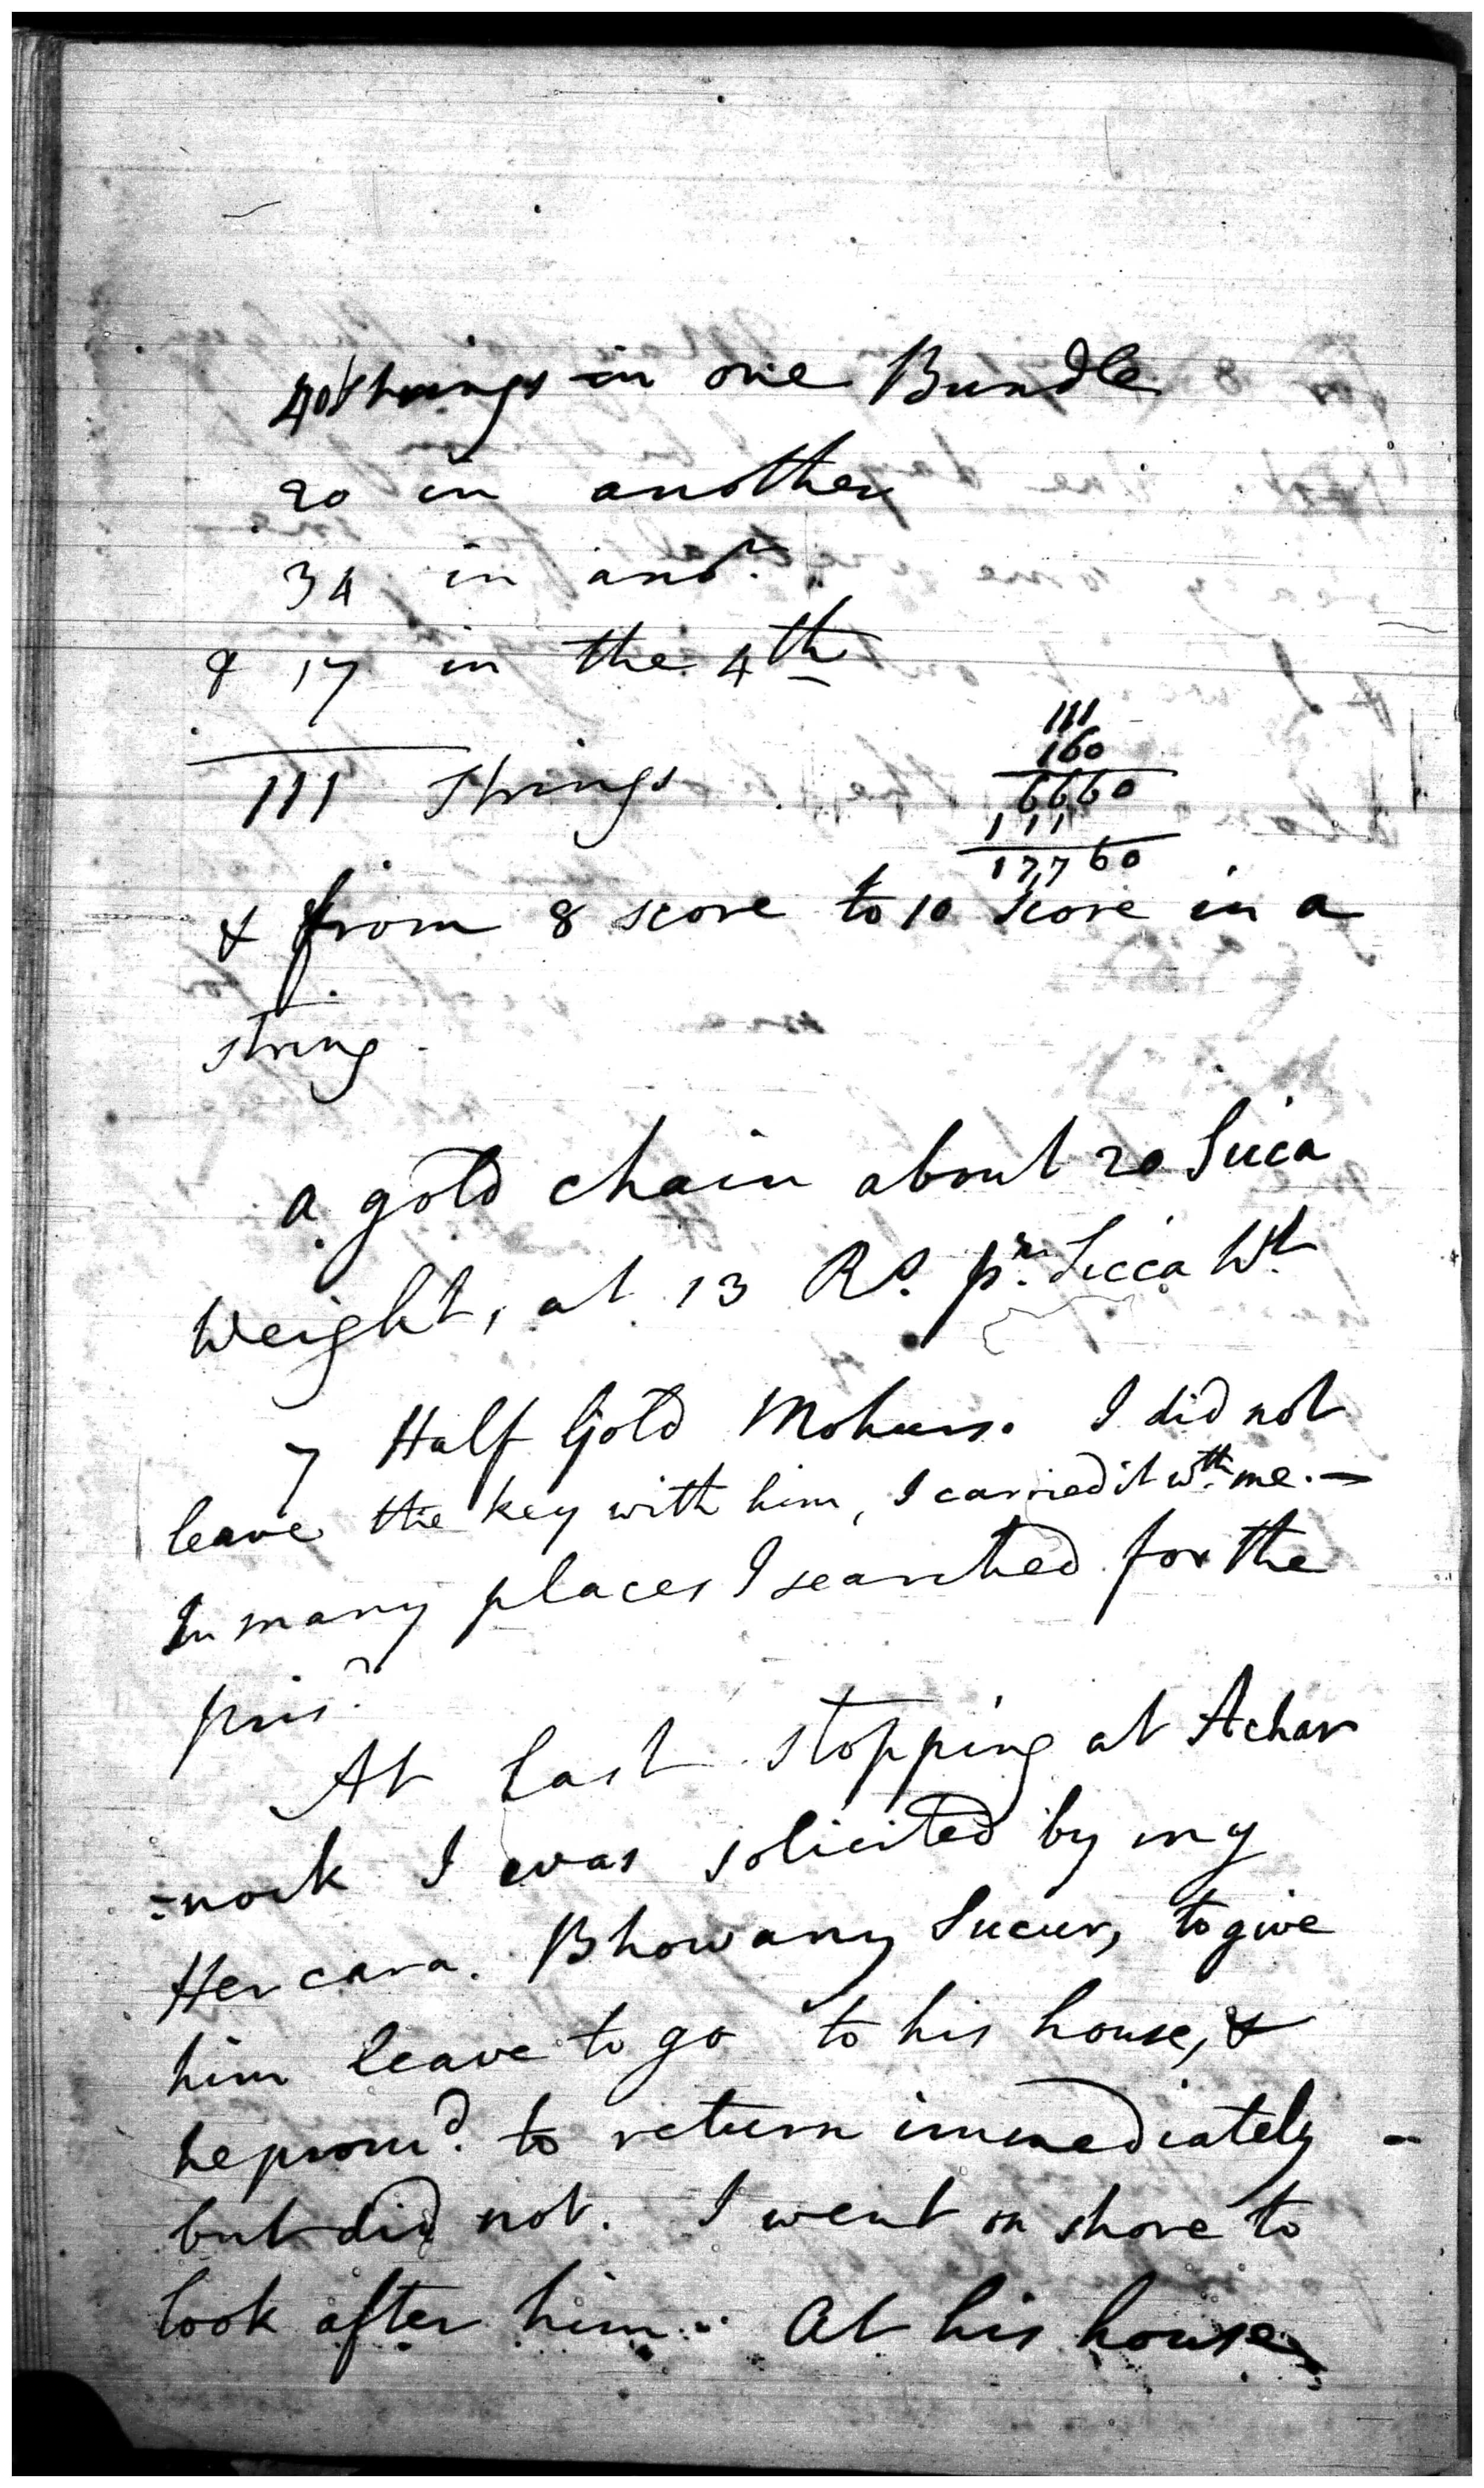 40 strings in one Bundle
20 in another
34 in anor.
& 17 in the 4th
111 strings
111
160
6660
111
17,760
& from 8 score to 10 score in a
string.
a gold chain about 20 Sicca
Weight, at 13 Rs. pr. Sicca Wt.
7 Half Gold Mohurs. I did not
leave the key with him, I carried it wth. me. —
In many places I searched for the
prisr.
At last stopping at Achar
=nock I was solicited by my
Hercara. Bhowany Sucur, to give
him leave to go to his house, &
he promd. to return immediately -
but did not. I went on shore to
look after him. At his house